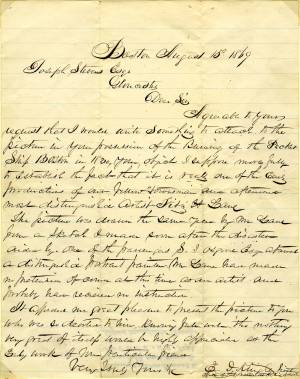 Boston August 15th 1869
Joseph Stevens Esqr
Gloucester
Dear Sir
Agreeable to yours
request that I would write something to attach to the
picture in your possession of the Burning of the Packet
Ship Boston in 1830, your object I suppose more fully
to establish the fact that it is one of the Early
productions of our Fellow Townsman and afterwards
most distinguished Artist Fitz H Lane
The picture was drawn the same year by Mr Lane
from a sketch I made soon after the disaster
aided by one of the passengers
a distinguished Portrait painter Mr Lane
no pretensions of course at this time as an artist and
probably have received no instruction
It affords me great pleasure to present the picture to you
who was so devoted to him knowing full well that nothing
very great of itself would be highly appreciated as the
Early work of your particular friend
Very truly yours